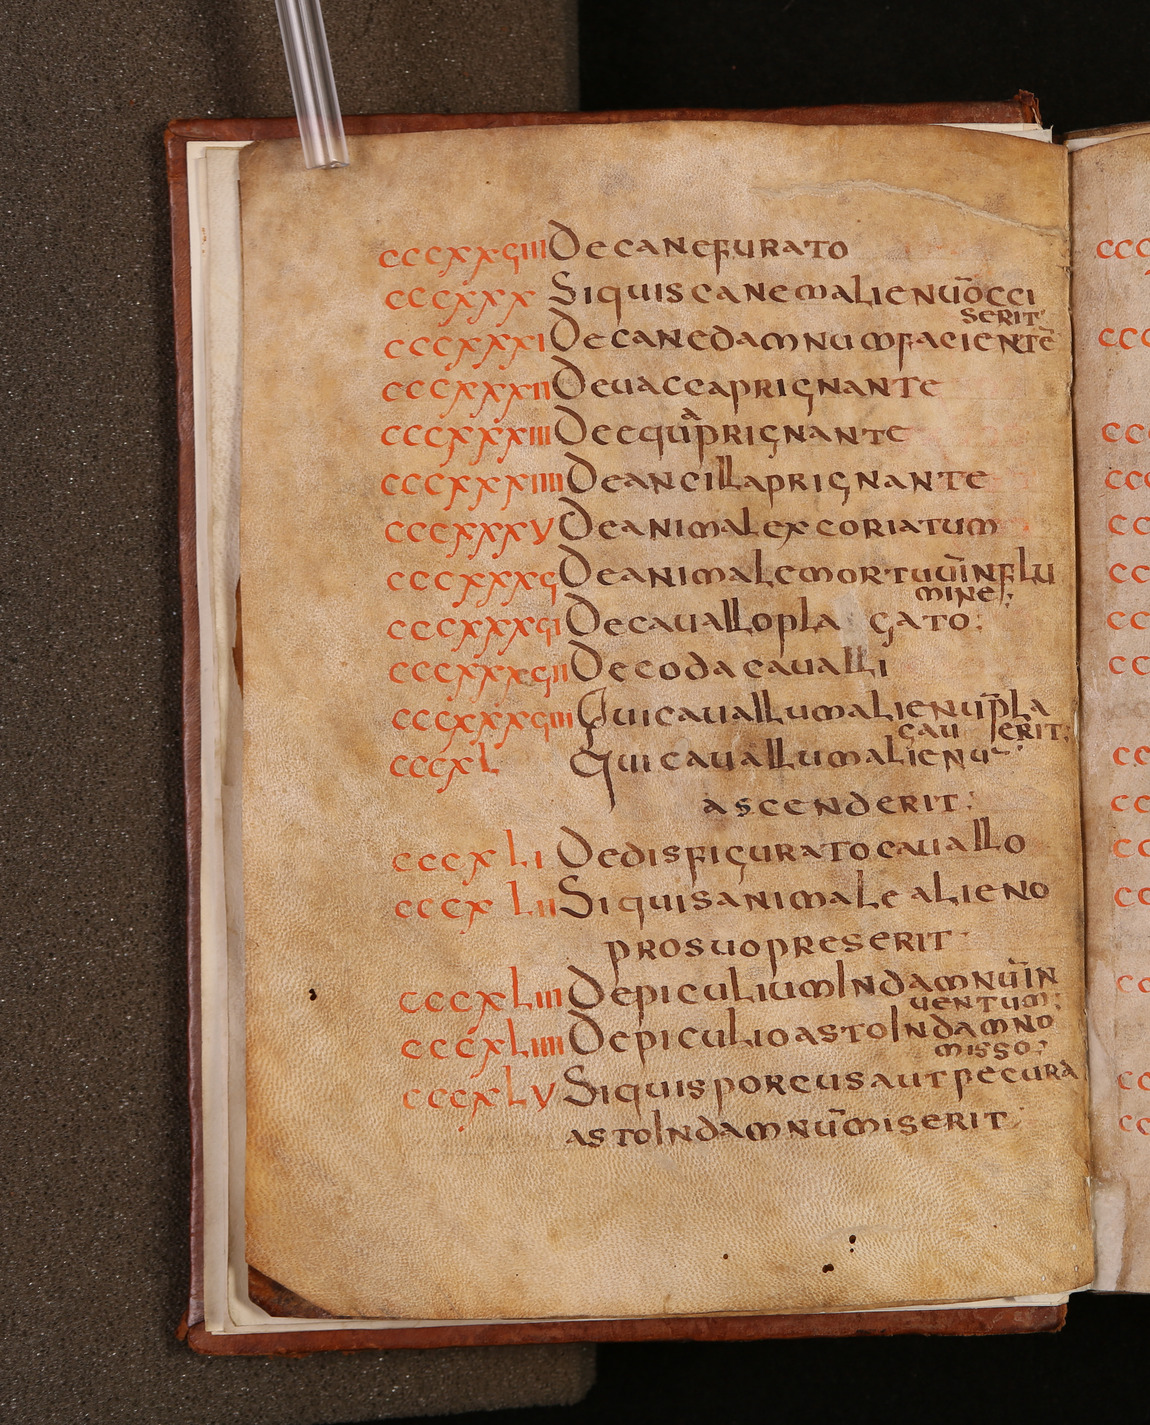 cccxxviiii De cane furato
cccxxx Si quis cane malienūocci
serit
cccxxxi De cane damnum facientē
cccxxxii De uacca prignante
cccxxxiii De equa prignante
cccxxxiiii De ancilla prignante
cccxxxv De animal excoriatum
cccxxxvi De animale mortuūinflu
mine;
cccxxxvii De cauallo pla gato;
cccxxxviii De coda caualli
cccxxxviiii Qui cauallum alienū pla
gau erit;
cccxl Qui cauallum alienū
ascenderit;
cccxli De disfigurato cauallo
cccxlii Si quis animale alieno
pro suo preserit
cccxliii De piculium In damnū in
uentum;
cccxliiii De piculio asto In damno
misso;
cccxlv Si quis porcus aut pecura
asto In damnū miserit